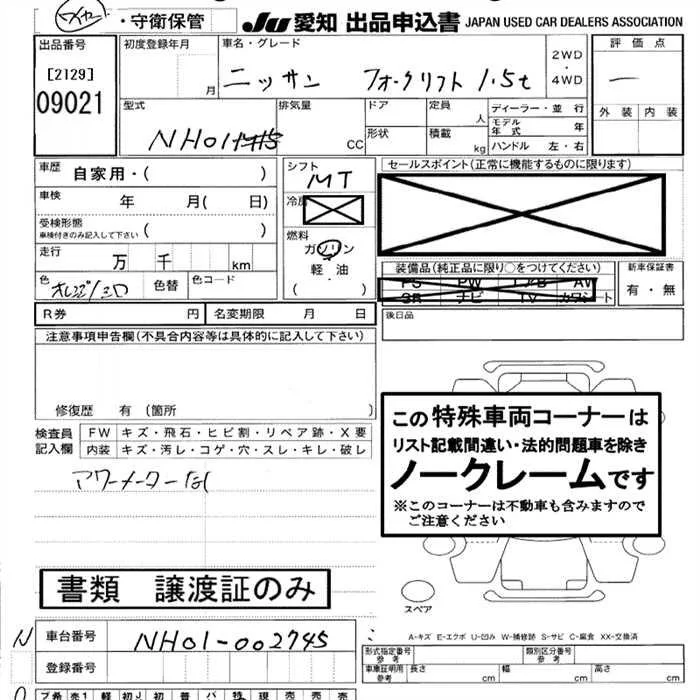 ・守衛保管 JU 愛知 出品申込書 JAPAN USED CAR DEALERS ASSOCIATION
出品番号 初度登録年月 月 車名・グレード 2WD ・ 4WD 評価点
[2129]
09021
ニッサン フォークリフト 1.5t
型式 排気量 CC ドア 形状 定員 人 積載 kg ディーラー・並 行 モデル年式 年 ハンドル 左・右 外装 内装
NH01
車歴 自家用・( ) シフト MT セールスポイント(正常に機能するものに限ります)
車検 年 月( 日) 冷房
受検形態 車検付きのみ記入して下さい ( ) 燃料 ガソリン 軽油 ( )
走行 万 千 km
装備品(純正品に限り○をつけてください) 新車保証書
色 色替 色コード PS PW エアB AV 有・無
SR ナビ TV カワシート
R券 円 名変期限 月 日 後日品
注意事項申告欄(不具合内容等は具体的に記入して下さい)
修復歴 有 (箇所 )
検査員記入欄 FW キズ・飛石・ヒビ割・リペア跡・X要
内装 キズ・汚レ・コゲ・穴・スレ・キレ・破レ
アワーメーター
この特殊車両コーナーは
リスト記載間違い・法的問題車を除き
ノークレームです
※このコーナーは不動車も含みますので
ご注意ください
書類 譲渡証のみ
スペア
A-キズ E-エクボ U-凹み W-補修跡 S-サビ C-腐食 XX-交換済
N 車台番号 NH01-002745
登録番号
型式指定番号 参考 類別区分番号 参考
車庫証明用 参考 長さ 幅 高さ